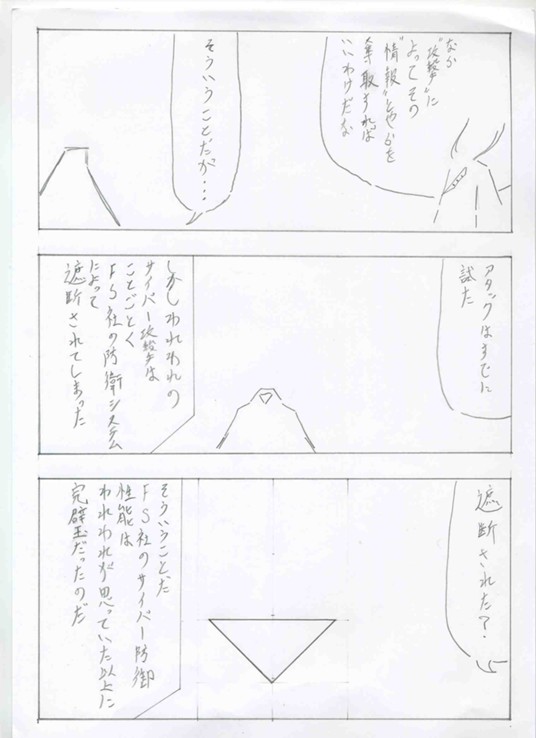 "攻撃"に
よってその
"情報"とやらを
奪取すれば
いいわけだな
そういうことだが・・・
アタックはすでに
試た
しかしわれわれの
サイバー攻撃は
ことごとく
FS社の防衛システム
によって
遮断されてしまった
遮断された?
そういうことだ
FS社のサイバー防御
性能は
われわれが思っていた以上に
完璧だったのだ